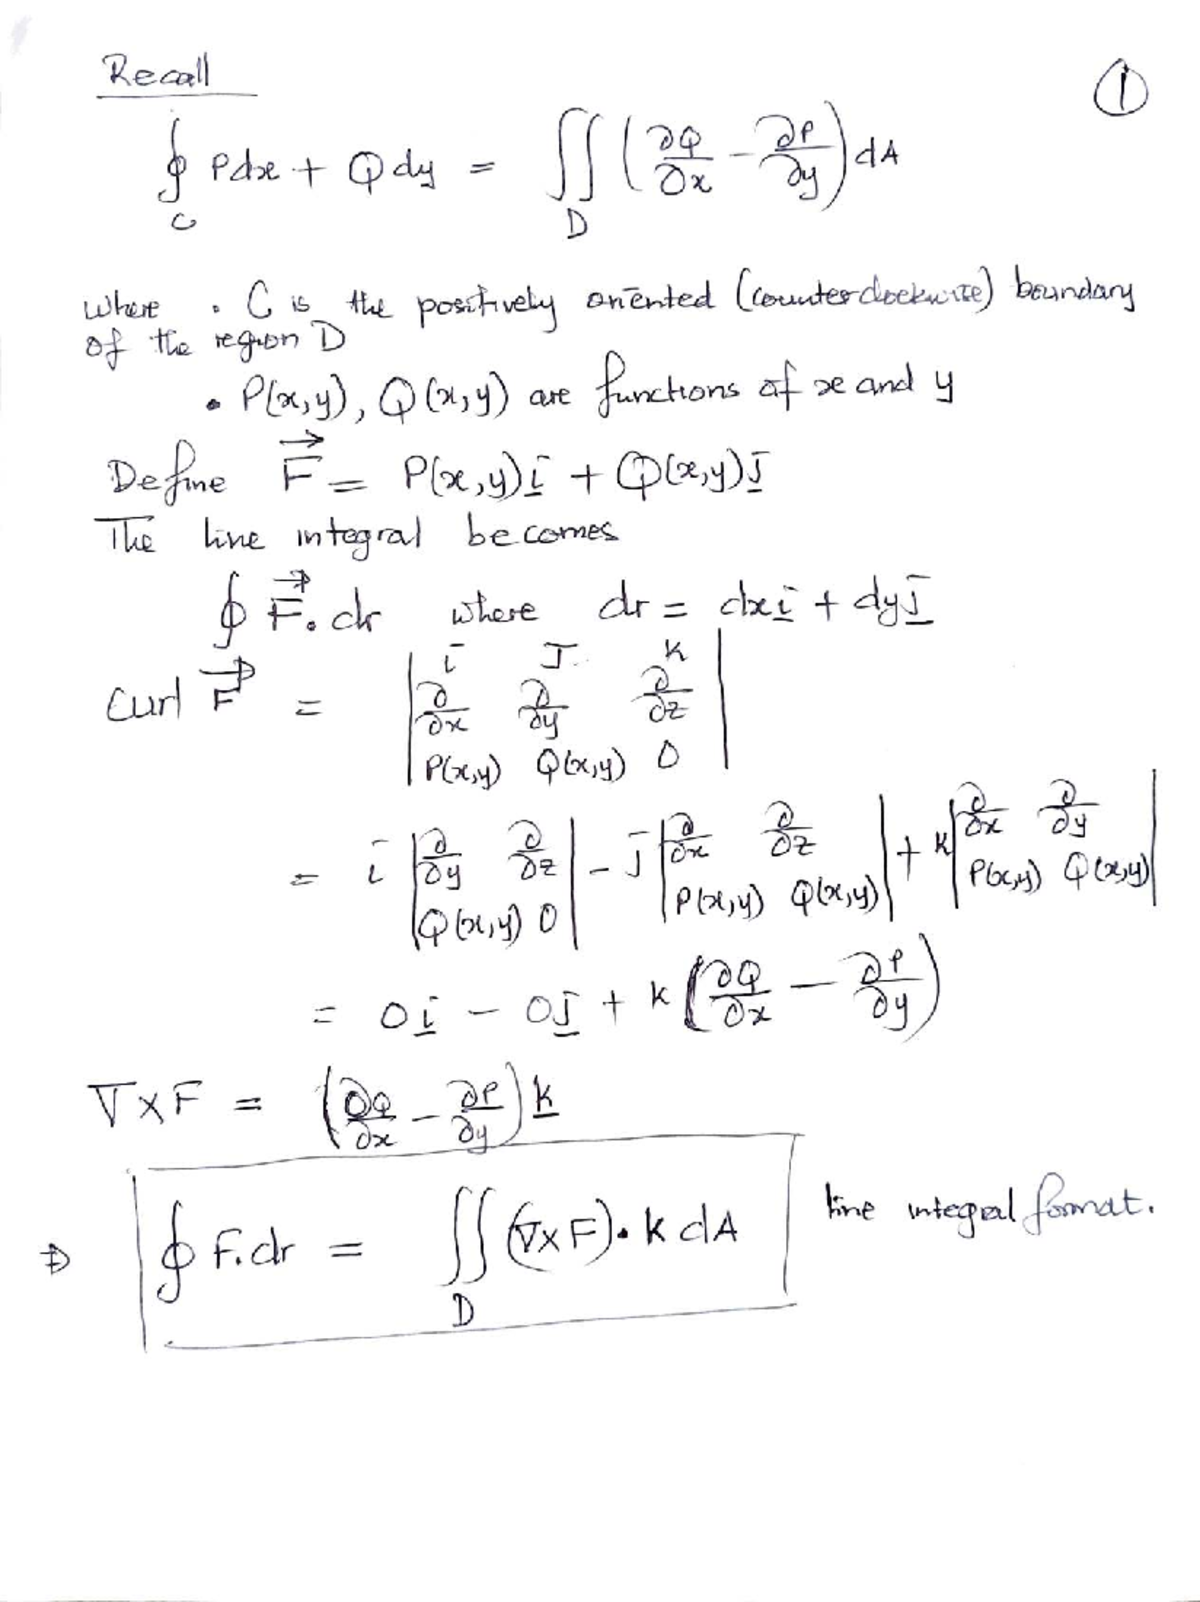 Recall
①
∮_C Pdx + Qdy = ∬_D (∂Q/∂x − ∂P/∂y) dA
where • C is the positively oriented (counterclockwise) boundary
of the region D
• P(x,y), Q(x,y) are functions of x and y
Define F⃗ = P(x,y)i + Q(x,y)J
The line integral becomes
∮ F⃗.dr where dr = dxi + dyJ
Curl F⃗ = | i J k ; ∂/∂x ∂/∂y ∂/∂z ; P(x,y) Q(x,y) 0 |
= i | ∂/∂y ∂/∂z ; Q(x,y) 0 | − J | ∂/∂x ∂/∂z ; P(x,y) Q(x,y) | + k | ∂/∂x ∂/∂y ; P(x,y) Q(x,y) |
= 0i − 0J + k (∂Q/∂x − ∂P/∂y)
∇×F = (∂Q/∂x − ∂P/∂y) k
⇒ ∮ F.dr = ∬_D (∇×F)·k dA line integral format.